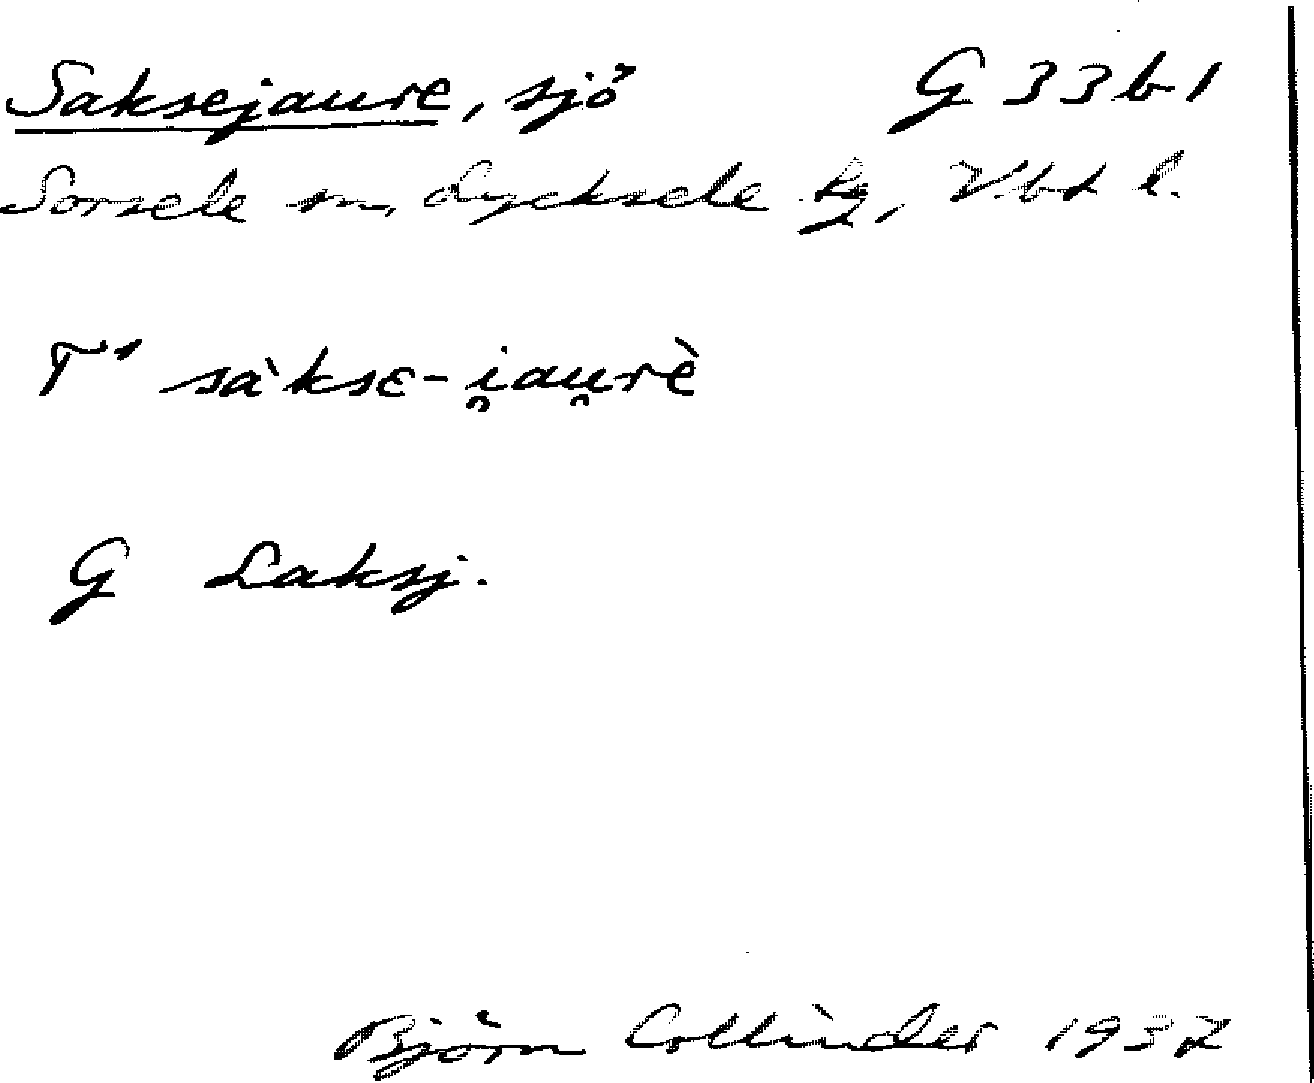 Saksejaure, sjö G 33 b 1
Sorsele sn, Lycksele lg, Vbt l.
T¹ sàksɛ-i̯au̯rè
G Laksj.
Björn Collinder 1937